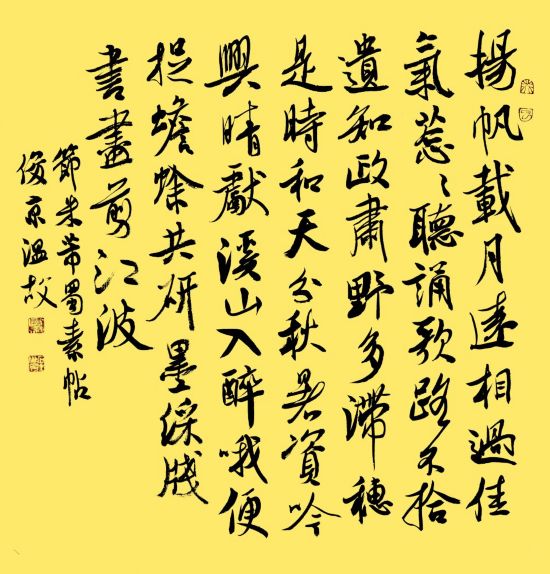 揚帆載月遠相過佳
氣葱〻聽誦歌路不拾
遺知政肅野多滯穗
是時和天分秋暑資吟
興晴獻溪山入醉哦便
捉蟾蜍共研墨綵牋
書盡剪江波
節米芾蜀素帖
俊京温故